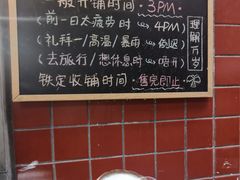 一般开铺时间·3PM·
(前一日太疲劳时 → 4PM)
(礼拜一/高温/暴雨 → 倒迟)
(去旅行/想休息时 → 唔开)
铁定收铺时间·售完即止·
理解万岁